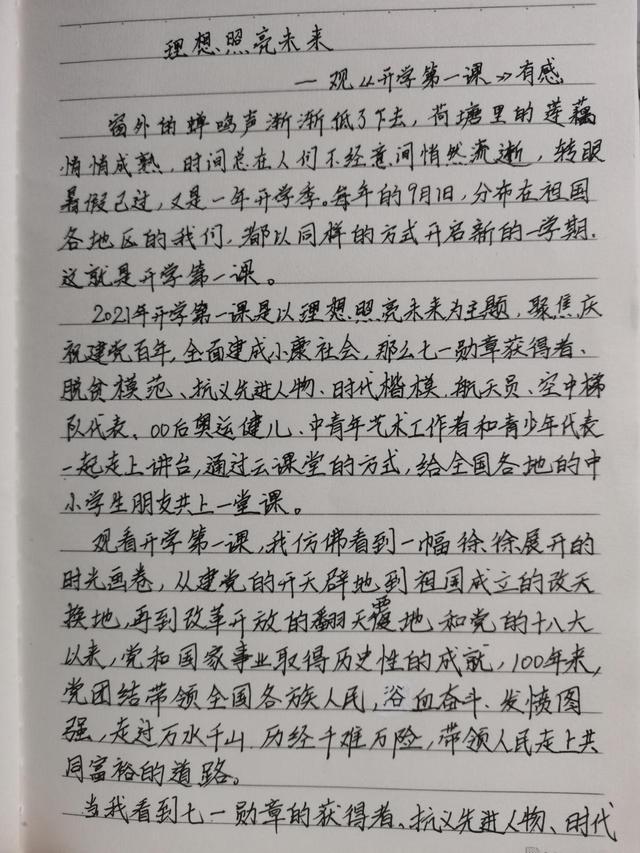 理想照亮未来
—观《开学第一课》有感
窗外的蝉鸣声渐渐低了下去，荷塘里的莲藕
悄悄成熟，时间总在人们不经意间悄然流逝，转眼
暑假已过，又是一年开学季。每年的9月1日，分布在祖国
各地区的我们，都以同样的方式开启新的一学期.
这就是开学第一课。
2021年开学第一课是以理想照亮未来为主题，聚焦庆
祝建党百年，全面建成小康社会，那么七一勋章获得者、
脱贫模范、抗义先进人物、时代楷模、航天员、空中梯
队代表、00后奥运健儿、中青年艺术工作者和青少年代表
一起走上讲台，通过云课堂的方式，给全国各地的中
小学生朋友共上一堂课。
观看开学第一课，我仿佛看到一幅徐徐展开的
时光画卷，从建党的开天辟地到祖国成立的改天
换地，再到改革开放的翻天覆地和党的十八大
以来，党和国家事业取得历史性的成就，100年来，
党团结带领全国各族人民，浴血奋斗、发愤图
强，走过万水千山、历经千难万险，带领人民走上共
同富裕的道路。
当我看到七一勋章的获得者、抗义先进人物、时代